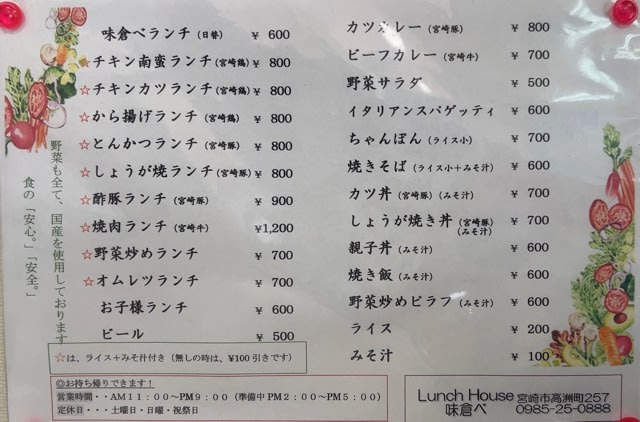 味倉べランチ（日替） ￥ 600
☆チキン南蛮ランチ（宮崎鶏） ￥ 800
☆チキンカツランチ（宮崎鶏） ￥ 800
☆から揚げランチ（宮崎鶏） ￥ 800
☆とんかつランチ（宮崎豚） ￥ 800
☆しょうが焼ランチ（宮崎豚） ￥ 800
☆酢豚ランチ（宮崎豚） ￥ 900
☆焼肉ランチ（宮崎牛） ￥1,200
☆野菜炒めランチ ￥ 700
☆オムレツランチ ￥ 700
お子様ランチ ￥ 600
ビール ￥ 500
☆は、ライス＋みそ汁付き（無しの時は、¥100引きです）
野菜も全て、国産を使用しております
食の「安心。」「安全。」
◎お持ち帰りできます！
営業時間・・AM11：00～PM9：00（準備中 PM2：00～PM5：00）
定休日・・・土曜日・日曜・祝祭日
カツカレー（宮崎豚） ￥ 800
ビーフカレー（宮崎牛） ￥ 700
野菜サラダ ￥ 500
イタリアンスパゲッティ ￥ 600
ちゃんぽん（ライス小） ￥ 700
焼きそば（ライス小＋みそ汁） ￥ 600
カツ丼（宮崎豚）（みそ汁） ￥ 700
しょうが焼き丼（宮崎豚）（みそ汁） ￥ 700
親子丼（みそ汁） ￥ 600
焼き飯（みそ汁） ￥ 600
野菜炒めピラフ（みそ汁） ￥ 600
ライス ￥ 200
みそ汁 ￥ 100
Lunch House 味倉べ
宮崎市高洲町257
0985-25-0888